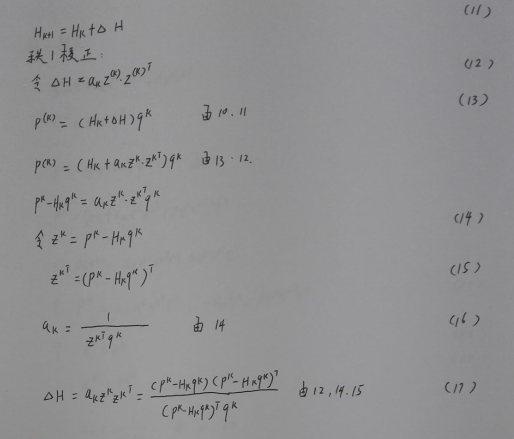 H_{k+1} = H_k + Δ H (11)
秩1校正:
令 ΔH = a_k z^{(k)} · z^{(k)T} (12)
p^{(k)} = (H_k + ΔH) q^k 由10.11 (13)
p^{(k)} = (H_k + a_k z^k · z^{kT}) q^k 由13·12.
p^k - H_k q^k = a_k z^k · z^{kT} q^k
令 z^k = p^k - H_k q^k (14)
z^{kT} = (p^k - H_k q^k)^T (15)
a_k = \frac{1}{z^{kT} q^k} 由14 (16)
ΔH = a_k z^k z^{kT} = \frac{(p^k - H_k q^k)(p^k - H_k q^k)^T}{(p^k - H_k q^k)^T q^k} 由12,14.15 (17)